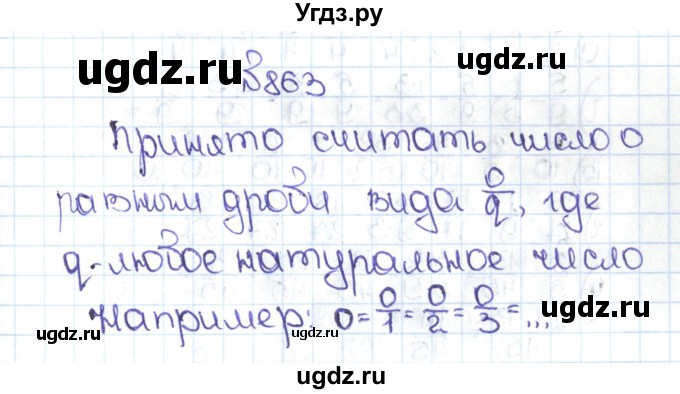 Угдз.ру
ugdz.ru
ugdz.ru
№863
Принято считать число 0
равным дроби вида 0/q, где
q-любое натуральное число
Например: 0=0/1=0/2=0/3=...
ugdz.ru
ugdz.ru
ugdz.ru
ugdz.ru